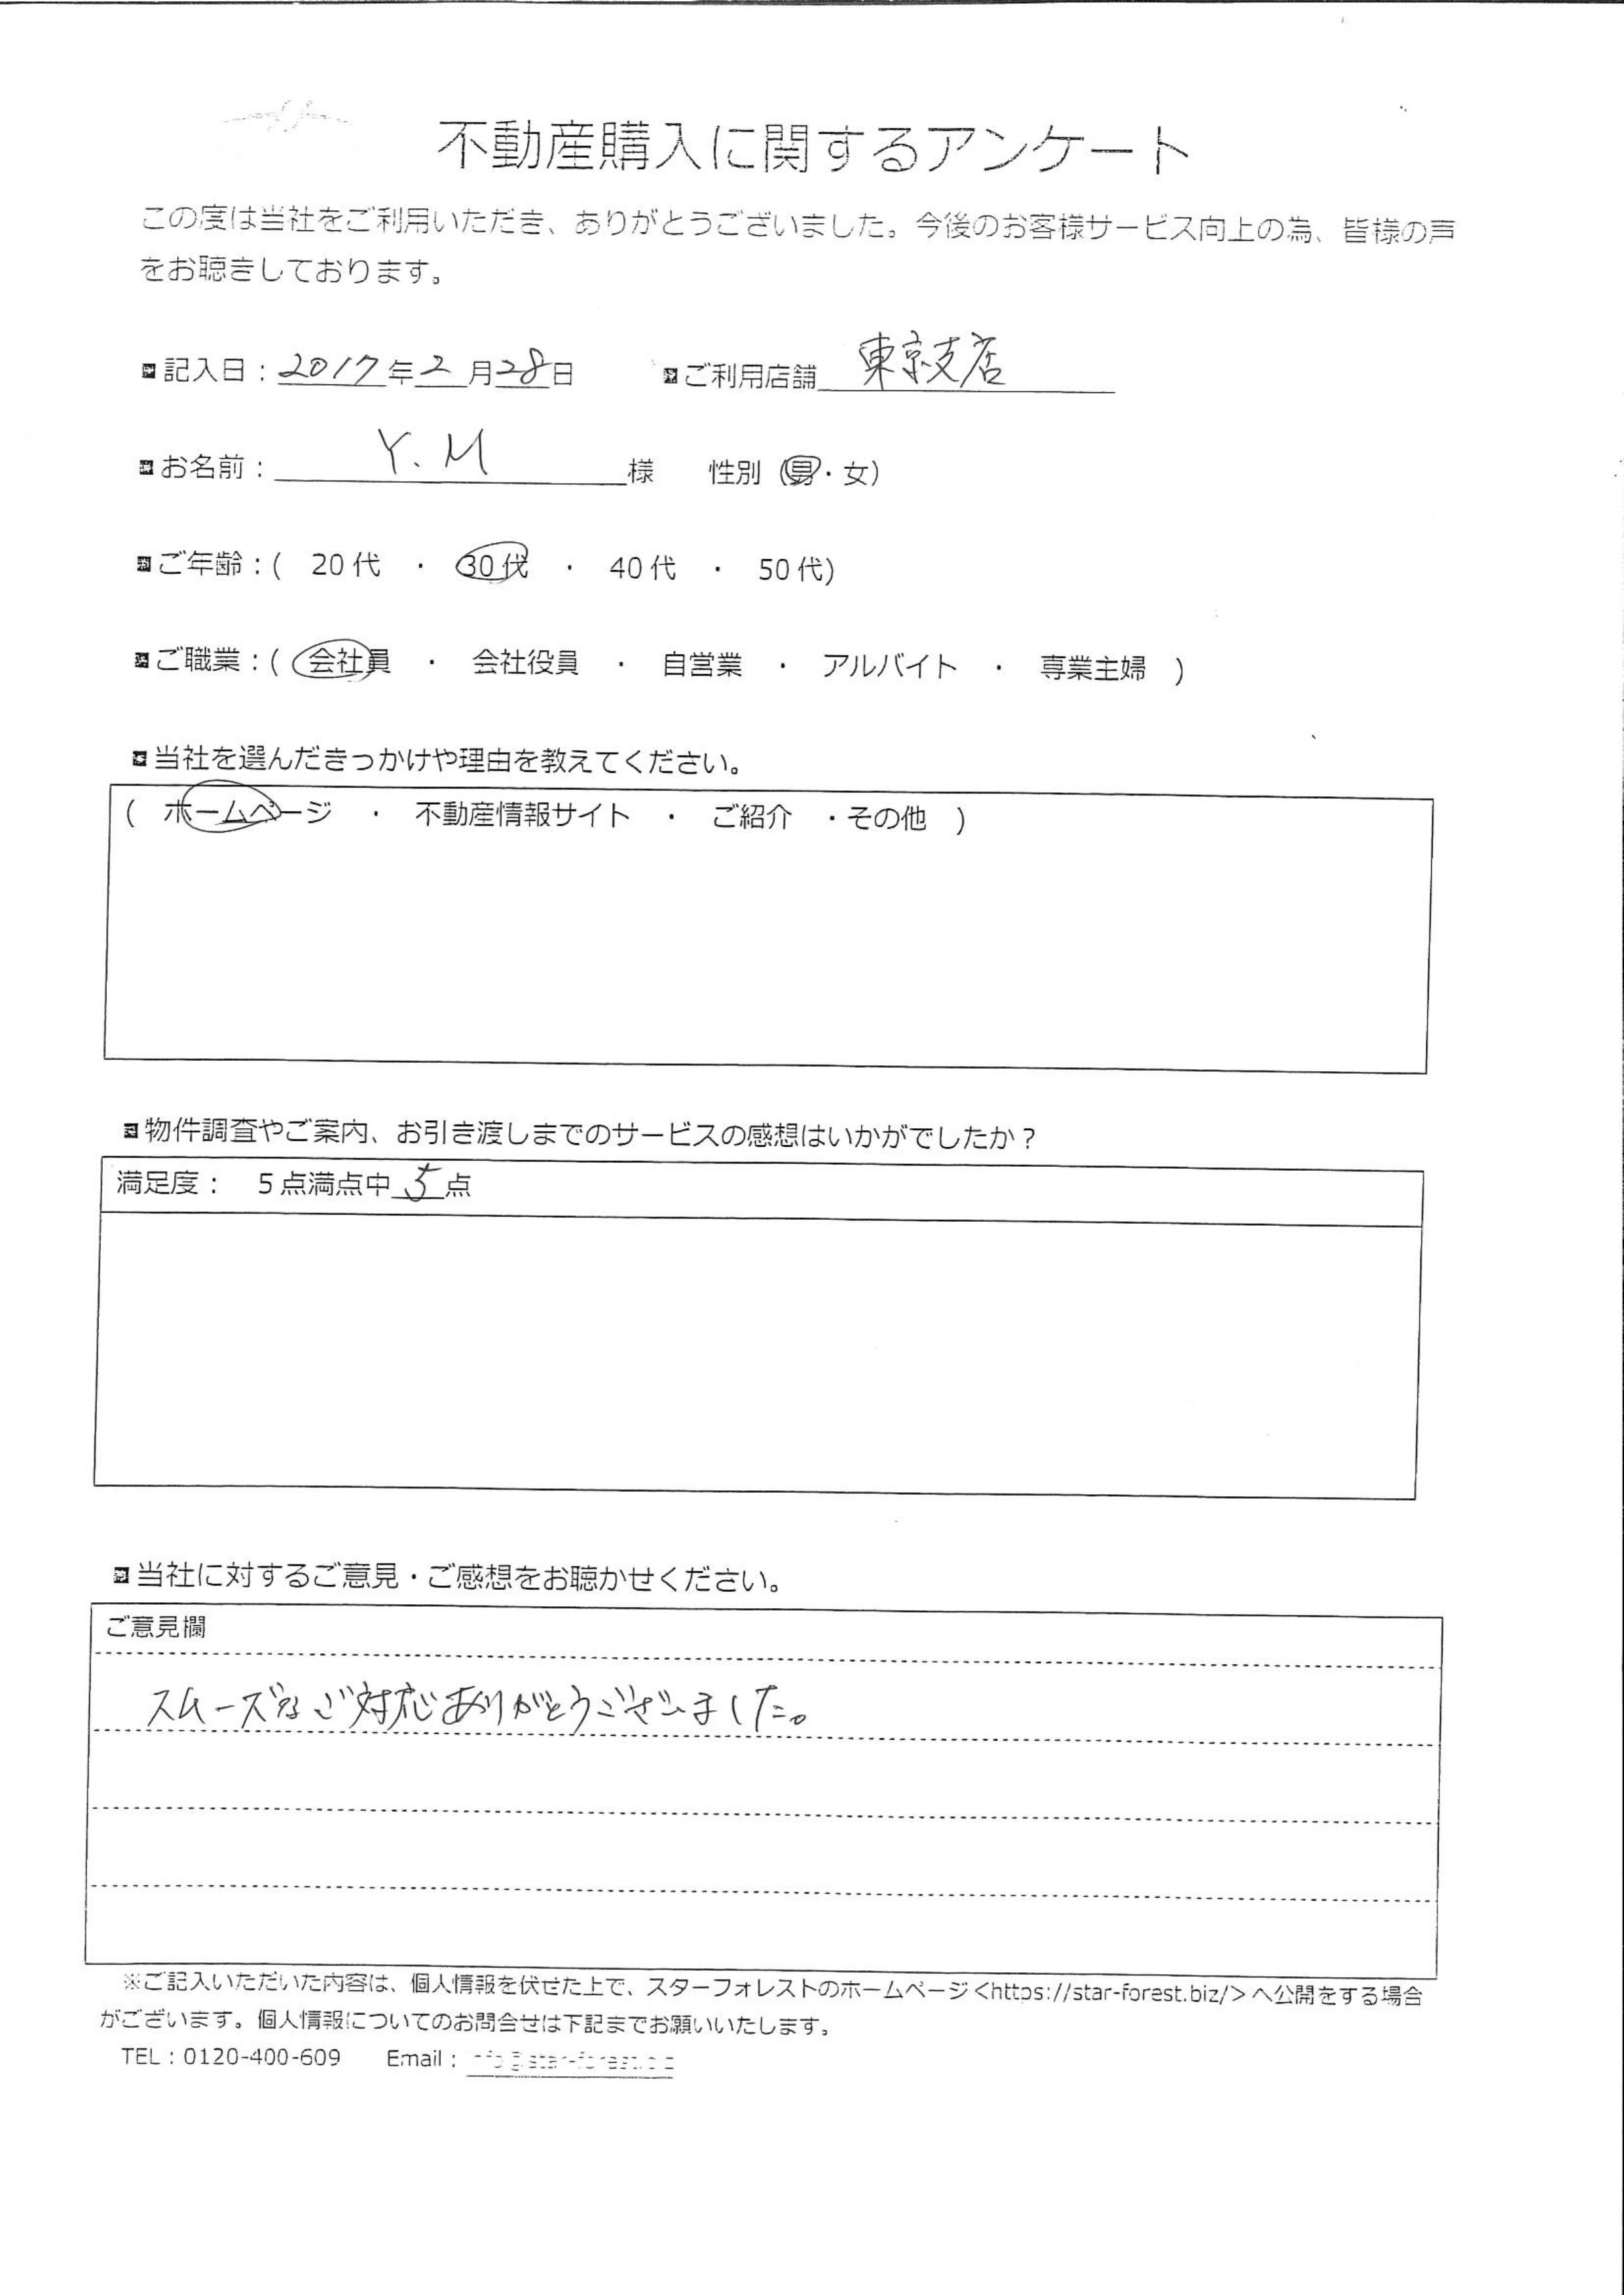 不動産購入に関するアンケート
この度は当社をご利用いただき、ありがとうございました。今後のお客様サービス向上の為、皆様の声
をお聴きしております。
記入日：2017年2月28日 ご利用店舗 東京支店
お名前： Y.M 様 性別（男・女）
ご年齢：( 20代 ・ 30代 ・ 40代 ・ 50代)
ご職業：( 会社員 ・ 会社役員 ・ 自営業 ・ アルバイト ・ 専業主婦 )
当社を選んだきっかけや理由を教えてください。
( ホームページ ・ 不動産情報サイト ・ ご紹介 ・その他 )
物件調査やご案内、お引き渡しまでのサービスの感想はいかがでしたか？
満足度： 5点満点中 5 点
当社に対するご意見・ご感想をお聴かせください。
ご意見欄
スムーズなご対応ありがとうございました。
※ご記入いただいた内容は、個人情報を伏せた上で、スターフォレストのホームページ<https://star-forest.biz/>へ公開をする場合
がございます。個人情報についてのお問合せは下記までお願いいたします。
TEL：0120-400-609 Email：